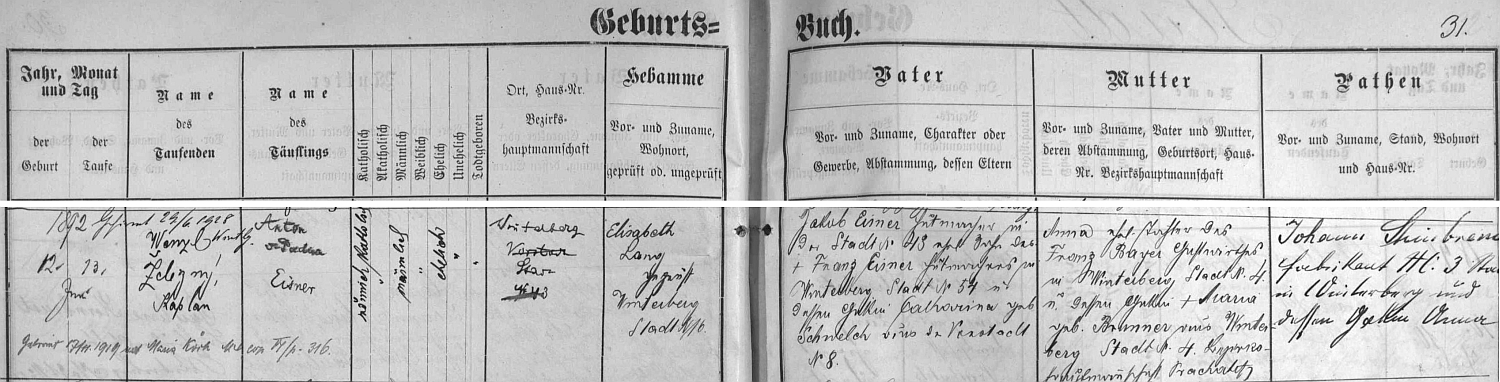 Geburts=
Buch.
31.
Jahr, Monat und Tag
der Geburt
der Taufe
Name des Taufenden
Name des Täuflings
Katholisch
Akatholisch
Männlich
Weiblich
Ehelich
Unehelich
Todtgeboren
Ort, Haus-Nr. Bezirks-
hauptmannschaft
Hebamme
Vor- und Zuname,
Wohnort,
geprüft od. ungeprüft
Vater
Vor- und Zuname, Charakter oder
Gewerbe, Abstammung, dessen Eltern
Mutter
Vor- und Zuname, Vater und Mutter,
deren Abstammung, Geburtsort, Haus-
Nr. Bezirkshauptmannschaft
Pathen
Vor- und Zuname, Stand, Wohnort
und Haus-Nr.
1892
12.
13.
Wenzl
Železný,
Kaplan
Anton
Eisner
männlich
ehelich
Winterberg
Stadt
Elisabeth
Lang
geprüft
Winterberg
Stadt
Jakob Eisner Hutmacher in
der Stadt N 48 ehl. Sohn des
+ Franz Eisner Hutmachers in
Winterberg Stadt N 54 u
dessen Gattin Catharina geb
aus der Vorstadt
N 8.
Anna ehl. Tochter des
Franz Bayer Gastwirthes
in Winterberg, Stadt N. 4.
u dessen Gattin + Maria
geb. Brunner aus Winter-
berg Stadt N. 4. Bezirks-
hauptmannschaft Prachatitz
Johann
Fabrikant N. 3
in Winterberg und
dessen Gattin Anna
1919
Maria
316.